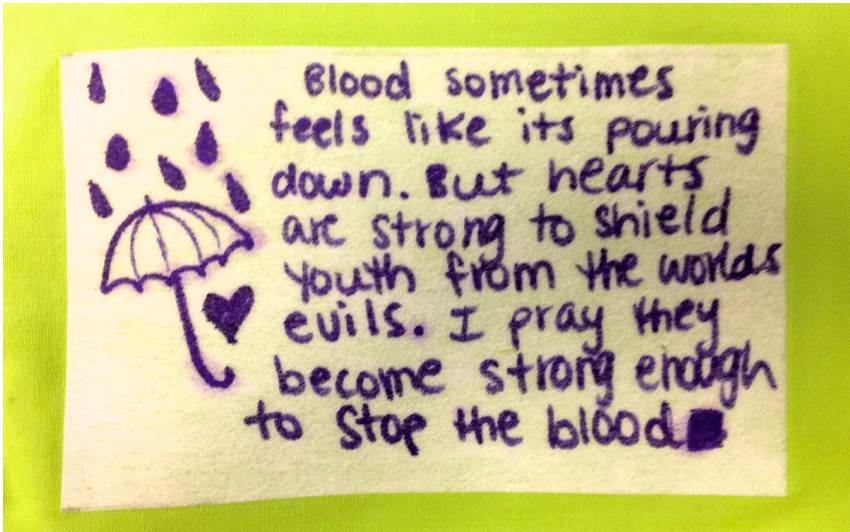 Blood sometimes
feels like its pouring
down. But hearts
are strong to shield
youth from the worlds
evils. I pray they
become strong enough
to stop the blood